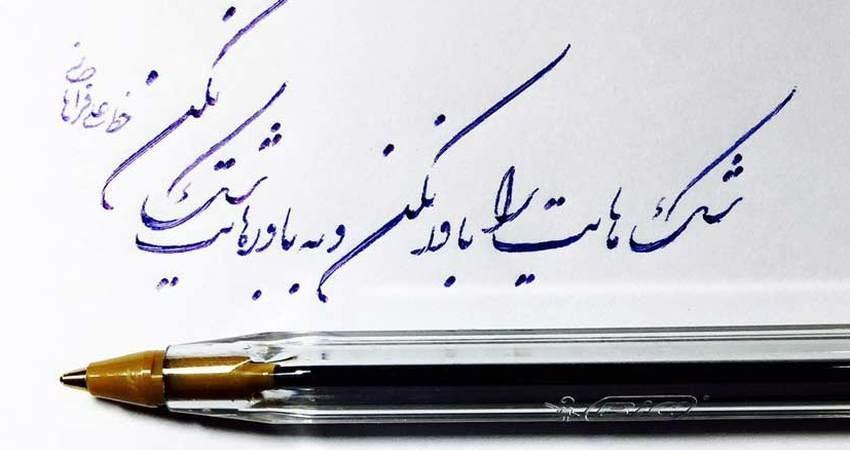 شک هایت را باور نکن و به باورهایت شک نکن
خط علی فراهانی
BIC